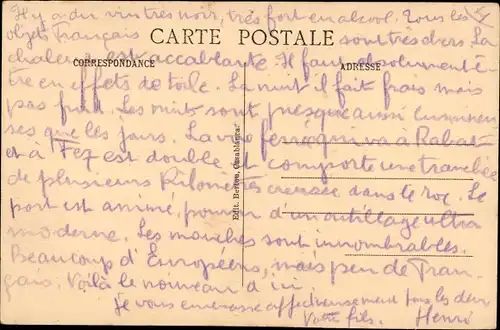 Il y a du vin très noir, très fort en alcool. Tous les
objets français sont très chers. La
CARTE POSTALE
chaleur est accablante. Il faut absolument ê-
CORRESPONDANCE
ADRESSE
tre en effets de toile. La nuit il fait frais mais
pas froid. Les nuits sont presque aussi lumineu
ses que les jours. La voie ferrée qui va à Rabat
et à Fez est double et comporte une tranchée
de plusieurs Kilomètres creusée dans le roc. Le
port est animé, pourvu d'un outillage ultra
moderne. Les mouches sont innombrables.
Beaucoup d'Européens, mais peu de Fran-
çais. Voilà le nouveau d'ici
Je vous embrasse affectueusement tous les deux
Votre fils. Henri
Edit. Casablanca